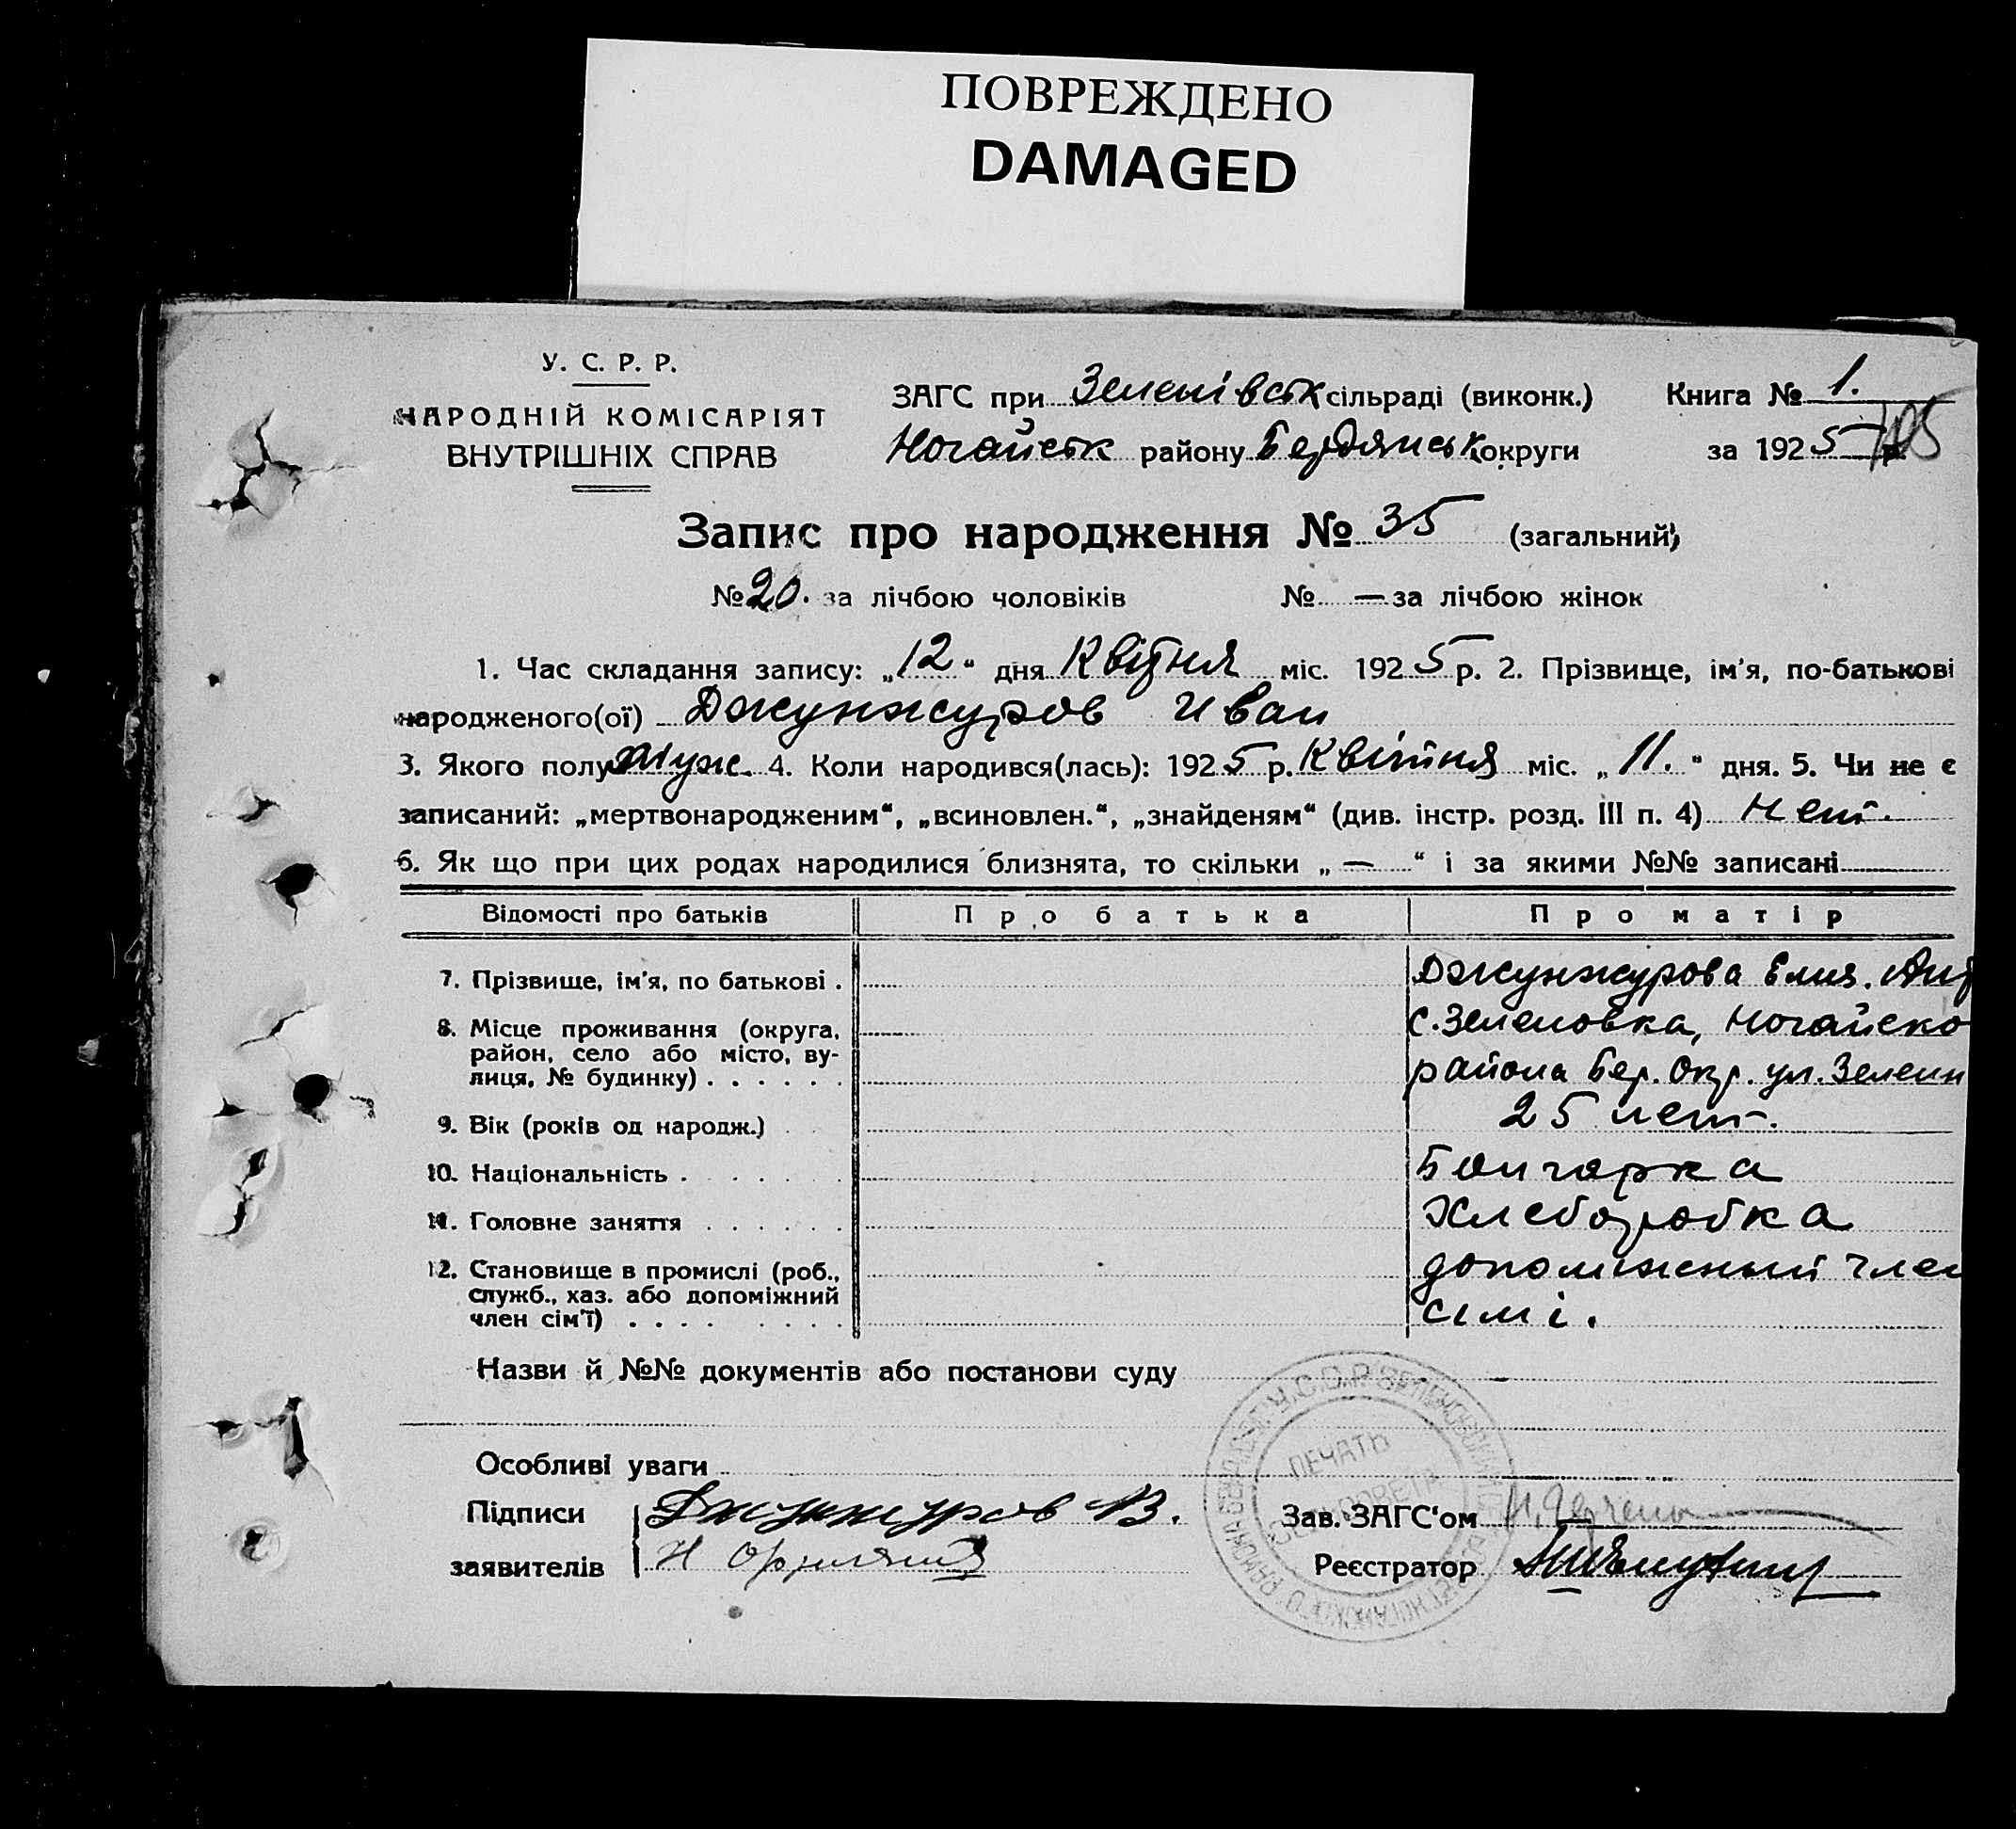 ПОВРЕЖДЕНО
DAMAGED
У. С. Р. Р.
НАРОДНІЙ КОМІСАРІЯТ
ВНУТРІШНІХ СПРАВ
ЗАГС при Зеленівськ сільраді (виконк.) Книга № 1.
Ногайськ району Бердянськ округи за 1925 р.
Запис про народження № 35 (загальний)
№ 20. за лічбою чоловіків № — за лічбою жінок
1. Час складання запису: „12“ дня Квітня міс. 1925 р. 2. Прізвище, ім'я, по-батькові
народженого(ої) Джунжуров Иван
3. Якого полу муж. 4. Коли народився(лась): 1925 р. Квітня міс. „11.“ дня. 5. Чи не є
записаний: „мертвонародженим“, „всиновлен.“, „знайденям“ (див. інстр. розд. III п. 4) нет.
6. Як що при цих родах народилися близнята, то скільки „—“ і за якими №№ записані
Відомості про батьків Про батька Про матір
7. Прізвище, ім'я, по батькові . Джунжурова Елиз.
8. Місце проживання (округа, с. Зеленовка, Ногайско
район, село або місто, ву-
лиця, № будинку) . . . . . . района Бер. Окр. ул. Зеленн
9. Вік (років од народж.) 25 лет.
10. Національність . . . . . . Болгарка
11. Головне заняття . . . . . . Хлеборобка
12. Становище в промислі (роб., допоміжный член
служб., хаз. або допоміжний
член сім'ї) . . . . . . . . сімі.
Назви й №№ документів або постанови суду
Особливі уваги
ПЕЧАТЬ
СЕЛЬСОВЕТА
Підписи Джунжуров В. Зав. ЗАГС'ом
заявителів Н Реєстратор